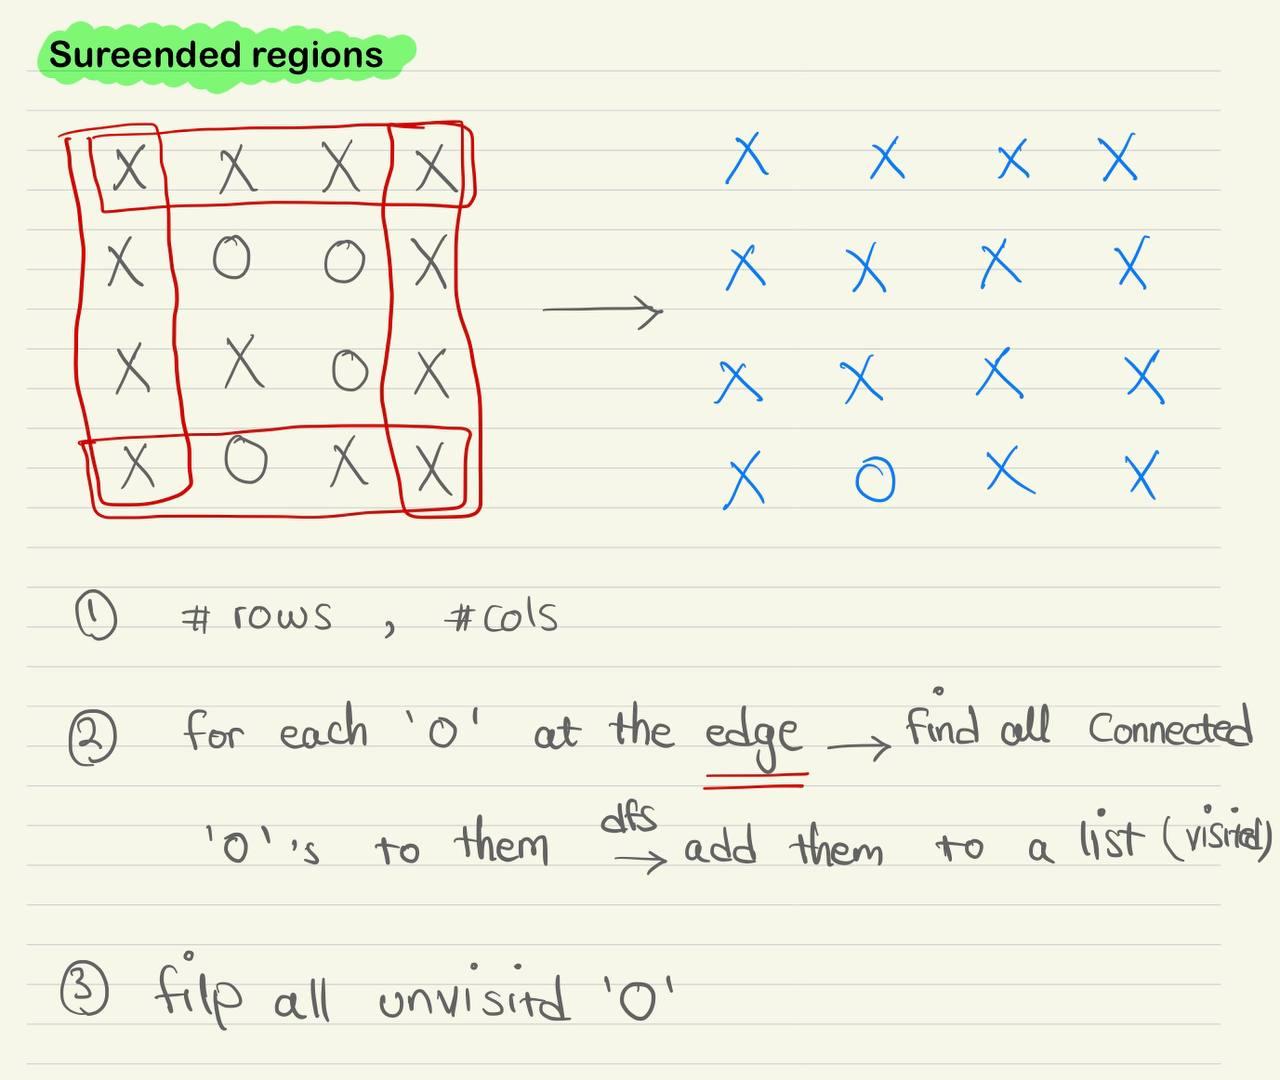 Sureended regions
X X X X X X X X
X O O X → X X X X
X X O X X X X X
X O X X X O X X
① # rows , # cols
② for each 'O' at the edge → find all Connected
'O's to them dfs → add them to a list (visited)
③ filp all unvisitd 'O'